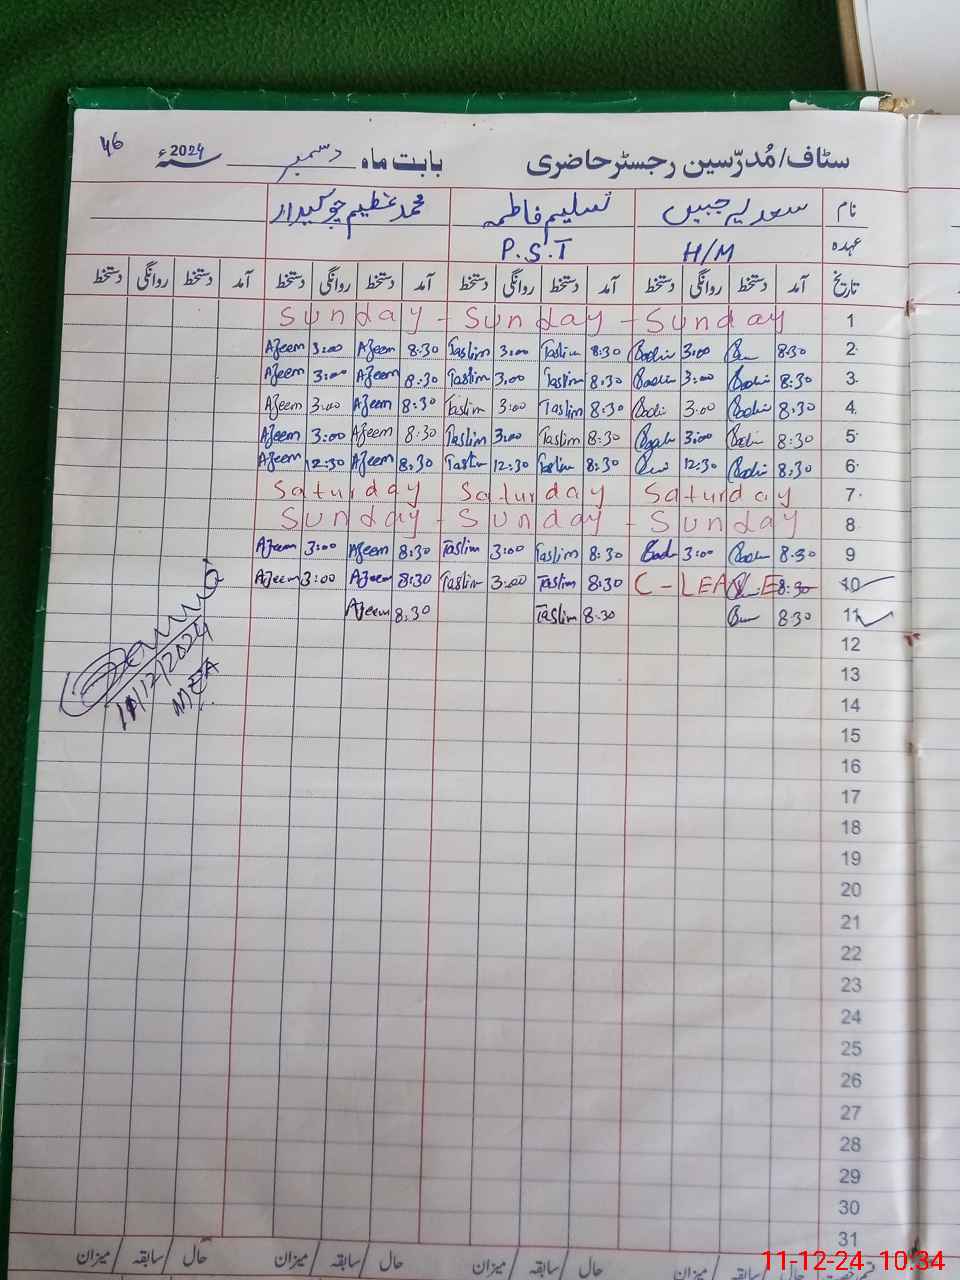 46
سٹاف/مُدرّسین رجسٹر حاضری بابت ماہ دسمبر سنہء 2024
نام سعدیہ جبیں تسلیم فاطمہ محمد عظیم چوکیدار
عہدہ H/M P.S.T
تاریخ آمد دستخط روانگی دستخط آمد دستخط روانگی دستخط آمد دستخط روانگی دستخط آمد دستخط روانگی دستخط
Sunday - Sunday - Sunday 1
Azeem 3:00 Azeem 8:30 Taslim 3:00 Taslim 8:30 3:00 8:30 2
Azeem 3:00 Azeem 8:30 Taslim 3:00 Taslim 8:30 3:00 8:30 3
Azeem 3:00 Azeem 8:30 Taslim 3:00 Taslim 8:30 3:00 8:30 4
Azeem 3:00 Azeem 8:30 Taslim 3:00 Taslim 8:30 3:00 8:30 5
Azeem 12:30 Azeem 8:30 Taslim 12:30 Taslim 8:30 12:30 8:30 6
Saturday Saturday Saturday 7
Sunday - Sunday - Sunday 8
Azeem 3:00 Azeem 8:30 Taslim 3:00 Taslim 8:30 3:00 8:30 9
Azeem 3:00 Azeem 8:30 Taslim 3:00 Taslim 8:30 C-LEAVE 8:30 10
Azeem 8:30 Taslim 8:30 8:30 11
11/12/2024
MEA
12
13
14
15
16
17
18
19
20
21
22
23
24
25
26
27
28
29
30
31
حال / سابقہ / میزان حال / سابقہ / میزان حال / سابقہ / میزان حال / سابقہ / میزان
11-12-24 10:34